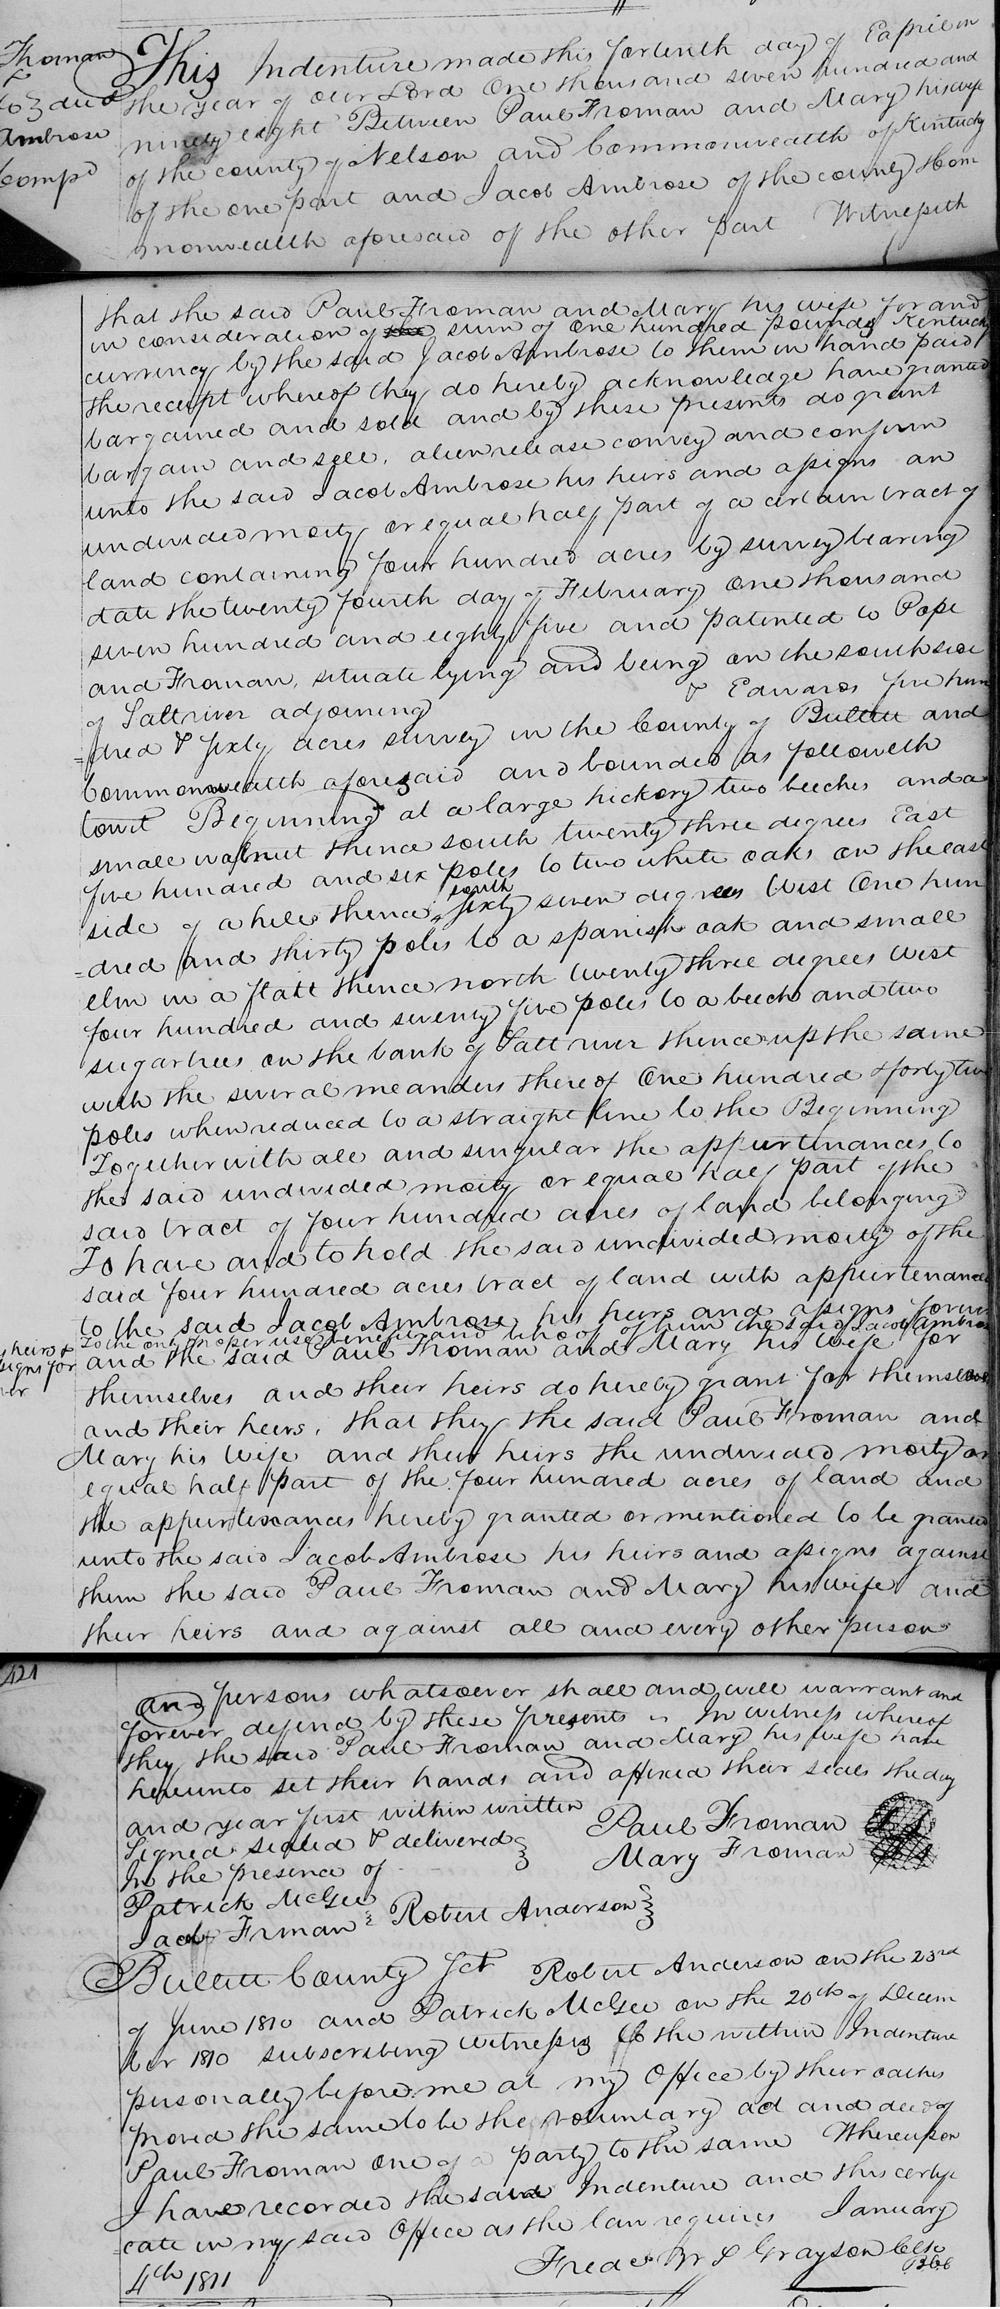 Froman
to } deed
Ambrose
Comp^d
This Indenture made this fortenth day of Eaprile in
the year of our Lord One thousand seven hundred and
ninety eight Between Paul Froman and Mary his wife
of the county of Nelson and Commonwealth of Kentucky
of the one part and Jacob Ambrose of the county & Com
monwealth aforesaid of the other part Witnesseth
that the said Paul Froman and Mary his wife for and
in consideration of the sum of One hundred pounds Kentucky
currency by the said Jacob Ambrose to them in hand paid
the receipt whereof they do hereby acknowledge have granted
bargained and sold and by these presents do grant
bargain and sell, alien release convey and confirm
unto the said Jacob Ambrose his heirs and assigns an
undivided moity or equal half part of a certain tract of
land containing four hundred acres by survey bearing
date the twenty fourth day of February One thousand
seven hundred and eighty five and patented to Pope
and Froman, situate lying and being on the south side
of Salt river adjoining & Edwards five hun
=dred & sixty acres survey in the County of Bullitt and
Commonwealth aforesaid and bounded as followeth
towit Beginning at a large hickory two beeches and a
small walnut thence south twenty three degrees East
five hundred and six poles to two white oaks on the east
side of a hill thence south sixty seven degrees West One hun
=dred and thirty poles to a spanish oak and small
elm in a flatt thence north twenty three degrees West
four hundred and seventy five poles to a beech and two
sugartrees on the bank of Salt river thence up the same
with the several meanders thereof One hundred & forty two
poles when reduced to a straight line to the Beginning
Together with all and singular the appurtinances to
the said undivided moity or equal half part of the
said tract of four hundred acres of land belonging
To have and to hold the said undivided moity of the
said four hundred acres tract of land with appurtenances
to the said Jacob Ambrose his heirs and assigns forever
To the only proper use benefit and behoof of him the said Jacob Ambrose
heirs &
assigns for
ver
and the said Paul Froman and Mary his wife for
themselves and their heirs do hereby grant for themselves
and their heirs, that they the said Paul Froman and
Mary his Wife and their heirs the undivided moity or
equal half part of the four hundred acres of land and
the appurtenances hereby granted or mentioned to be granted
unto the said Jacob Ambrose his heirs and assigns against
them the said Paul Froman and Mary his wife and
their heirs and against all and every other person
421
and persons whatsoever shall and will warrant and
forever defend by these presents In witness whereof
they the said Paul Froman and Mary his wife have
hereunto set their hands and affixed their seals the day
and year first within written
Signed sealed & delivered
In the presence of
Paul Froman
Mary Froman
Patrick McGee
Jacob Frman Robert Anderson
Bullitt County Sct Robert Anderson on the 23rd
of June 1810 and Patrick McGee on the 20th of Decem
ber 1810 subscribing witnesses to the within Indenture
personally before me at my Office by their oathes
proved the same to be the voluntary act and deed of
Paul Froman one of a party to the same Whereupon
I have recorded the said Indenture and this certifi
cate in my said Office as the law requires January
4th 1811
Frede W S Grayson Clk